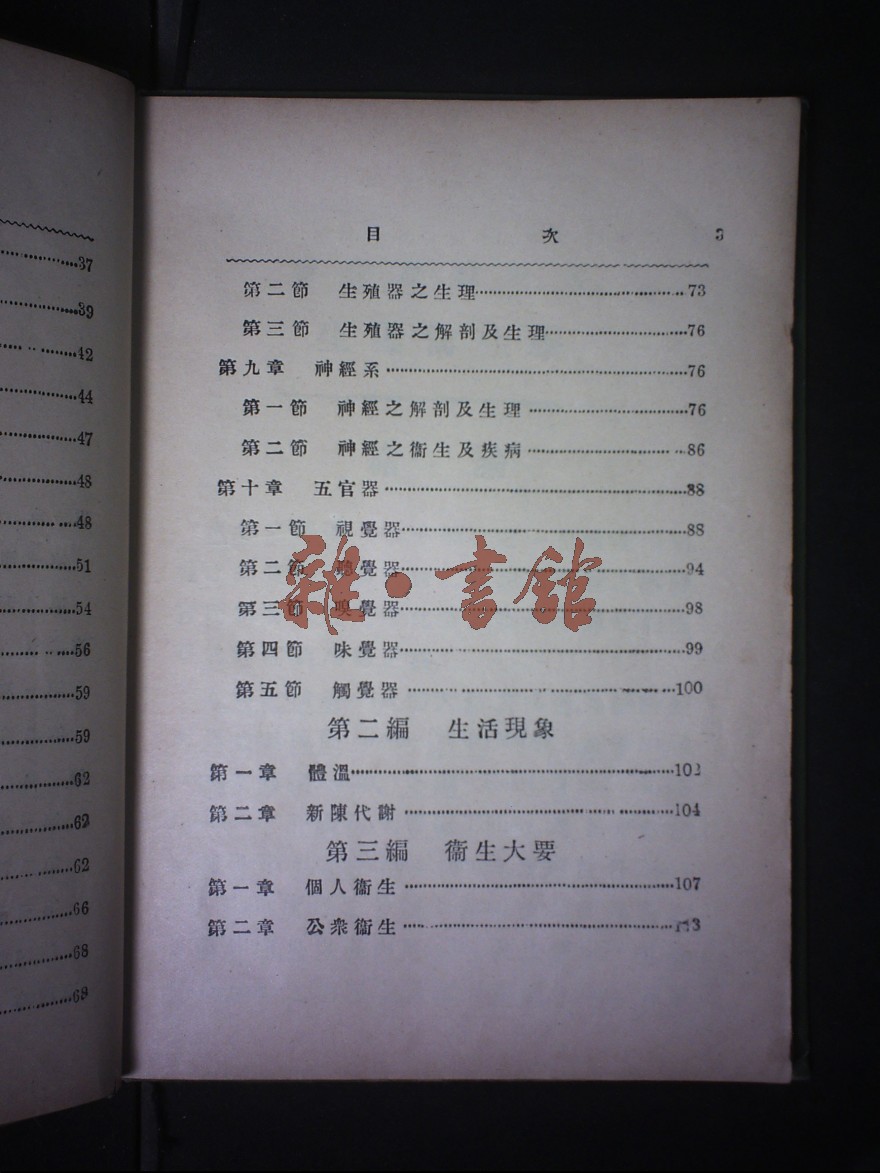 37
39
42
44
47
48
48
51
54
56
59
59
62
62
66
68
目 次 3
第二節 生殖器之生理 73
第三節 生殖器之解剖及生理 76
第九章 神經系 76
第一節 神經之解剖及生理 76
第二節 神經之衞生及疾病 86
第十章 五官器 88
第一節 視覺器 88
第二節 聽覺器 94
第三節 嗅覺器 98
第四節 味覺器 99
第五節 觸覺器 100
第二編 生活現象
第一章 體溫 102
第二章 新陳代謝 104
第三編 衞生大要
第一章 個人衞生 107
第二章 公衆衞生
雜·書館